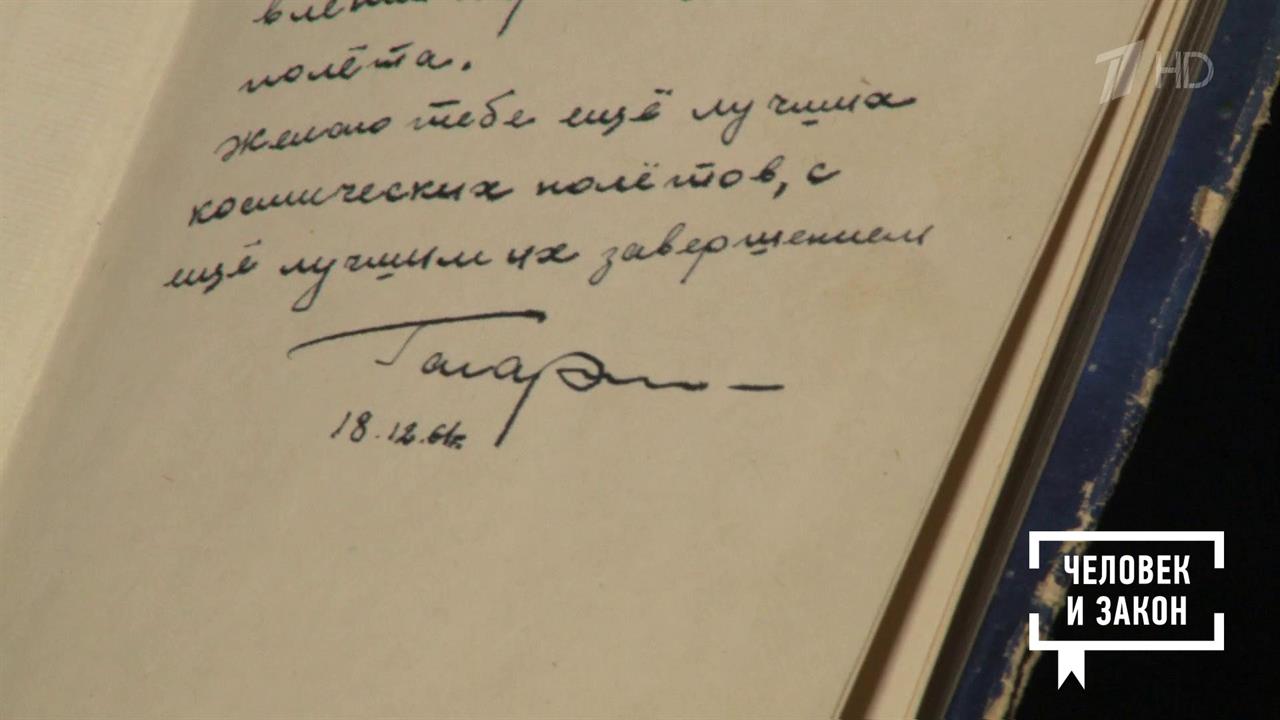 полёта.
Желаю тебе ещё лучших
космических полётов, с
ещё лучшим их завершением
Гагарин
18.12.61г.
HD
ЧЕЛОВЕК
И ЗАКОН